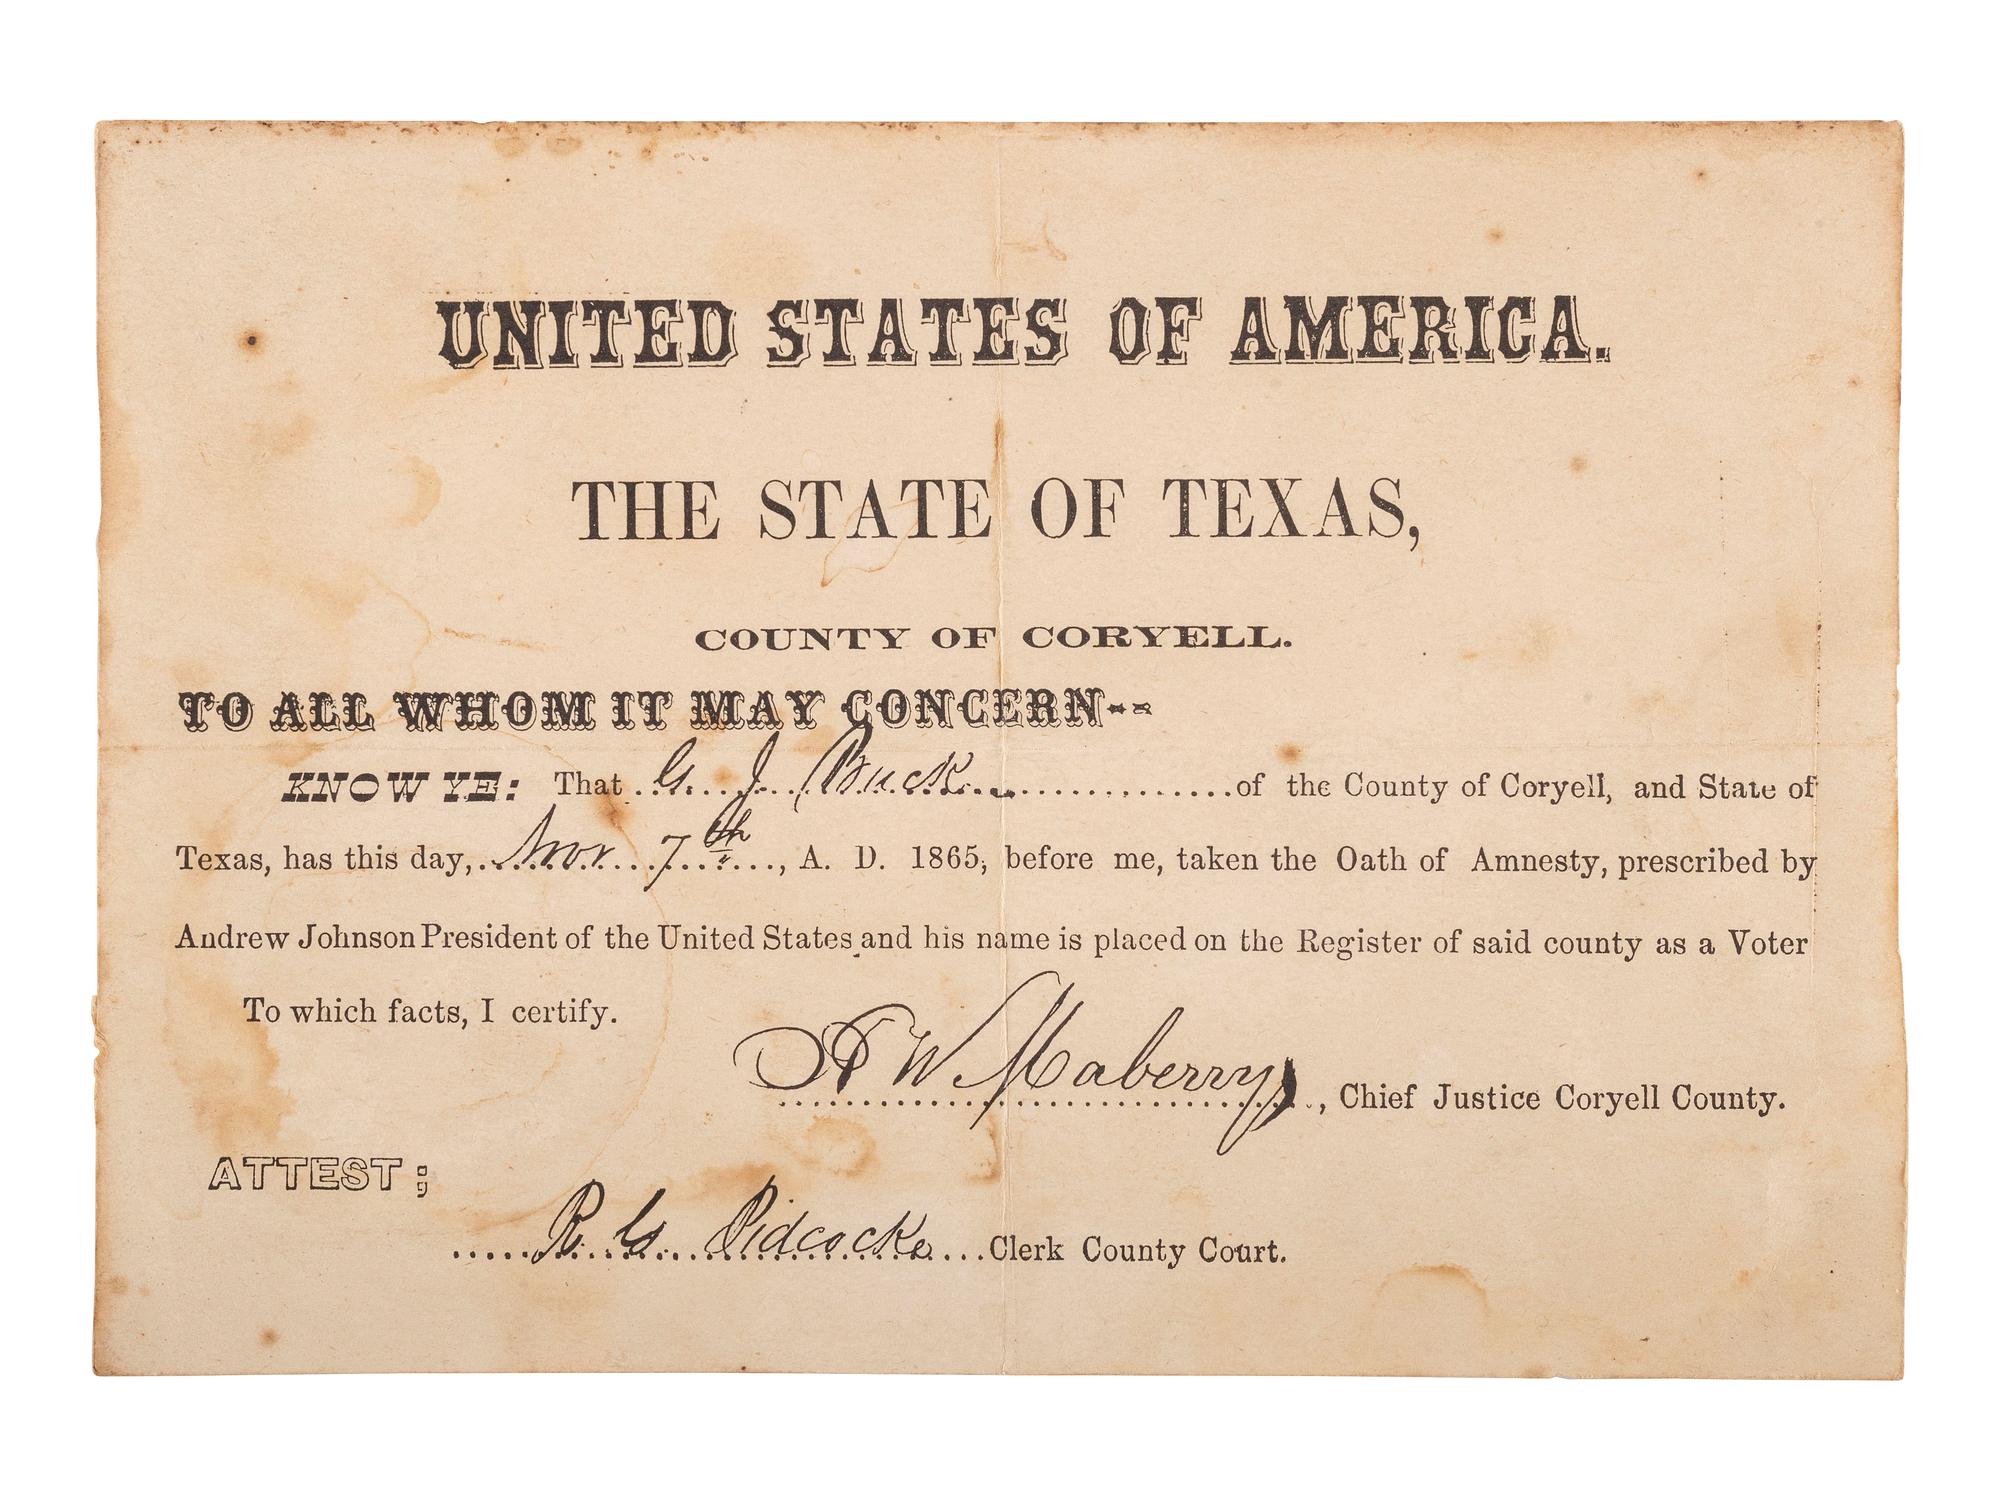 UNITED STATES OF AMERICA.
THE STATE OF TEXAS,
COUNTY OF CORYELL.
TO ALL WHOM IT MAY CONCERN--
KNOW YE: That G. J. Buck of the County of Coryell, and State of
Texas, has this day, Nov. 7th, A. D. 1865, before me, taken the Oath of Amnesty, prescribed by
Andrew Johnson President of the United States and his name is placed on the Register of said county as a Voter
To which facts, I certify.
A W Maberry, Chief Justice Coryell County.
ATTEST;
R. G. Pidcocke Clerk County Court.